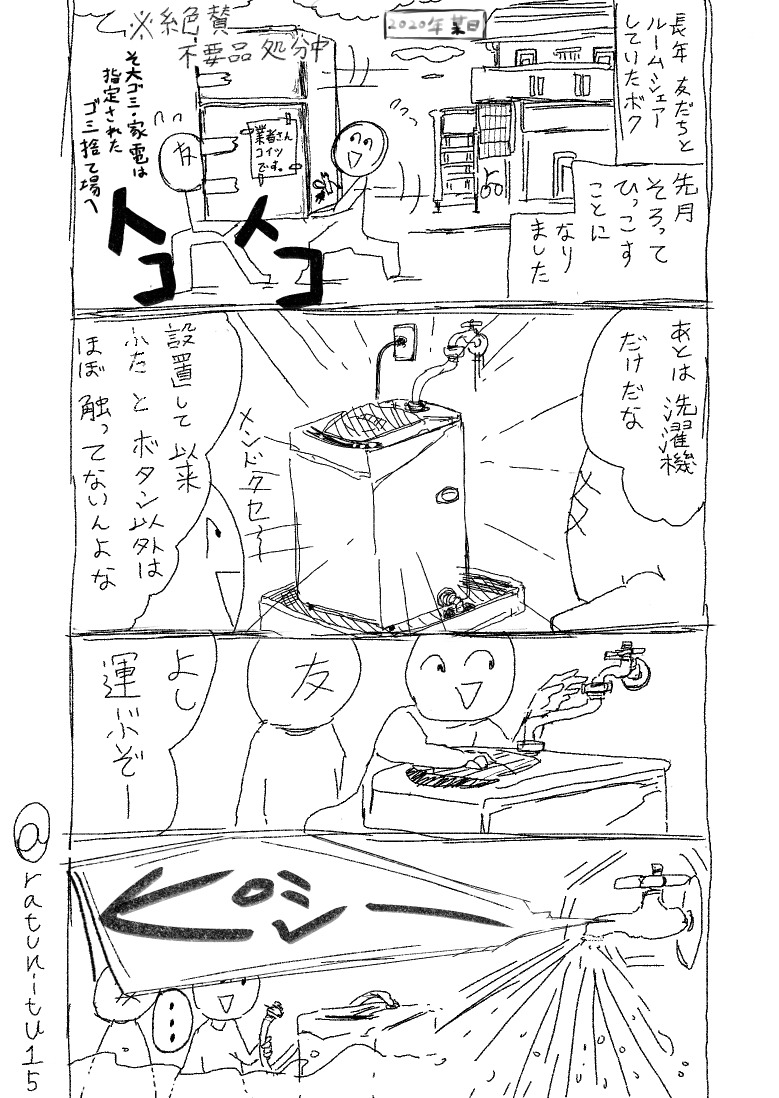 2020年 某日
長年 友だちと
ルームシェア
していたボク
先月
そろって
ひっこす
ことに
なり
ました
※絶賛
不要品処分中
業者さん
コイツ
です。
友
そ大ゴミ・家電は
指定された
ゴミ捨て場へ
トコ
トコ
あとは洗濯機
だけだな
メンドクセー
設置して以来
ふたとボタン以外は
ほぼ触ってないんよな
友
よし
運ぶぞー
ピシー
@ratunitu15